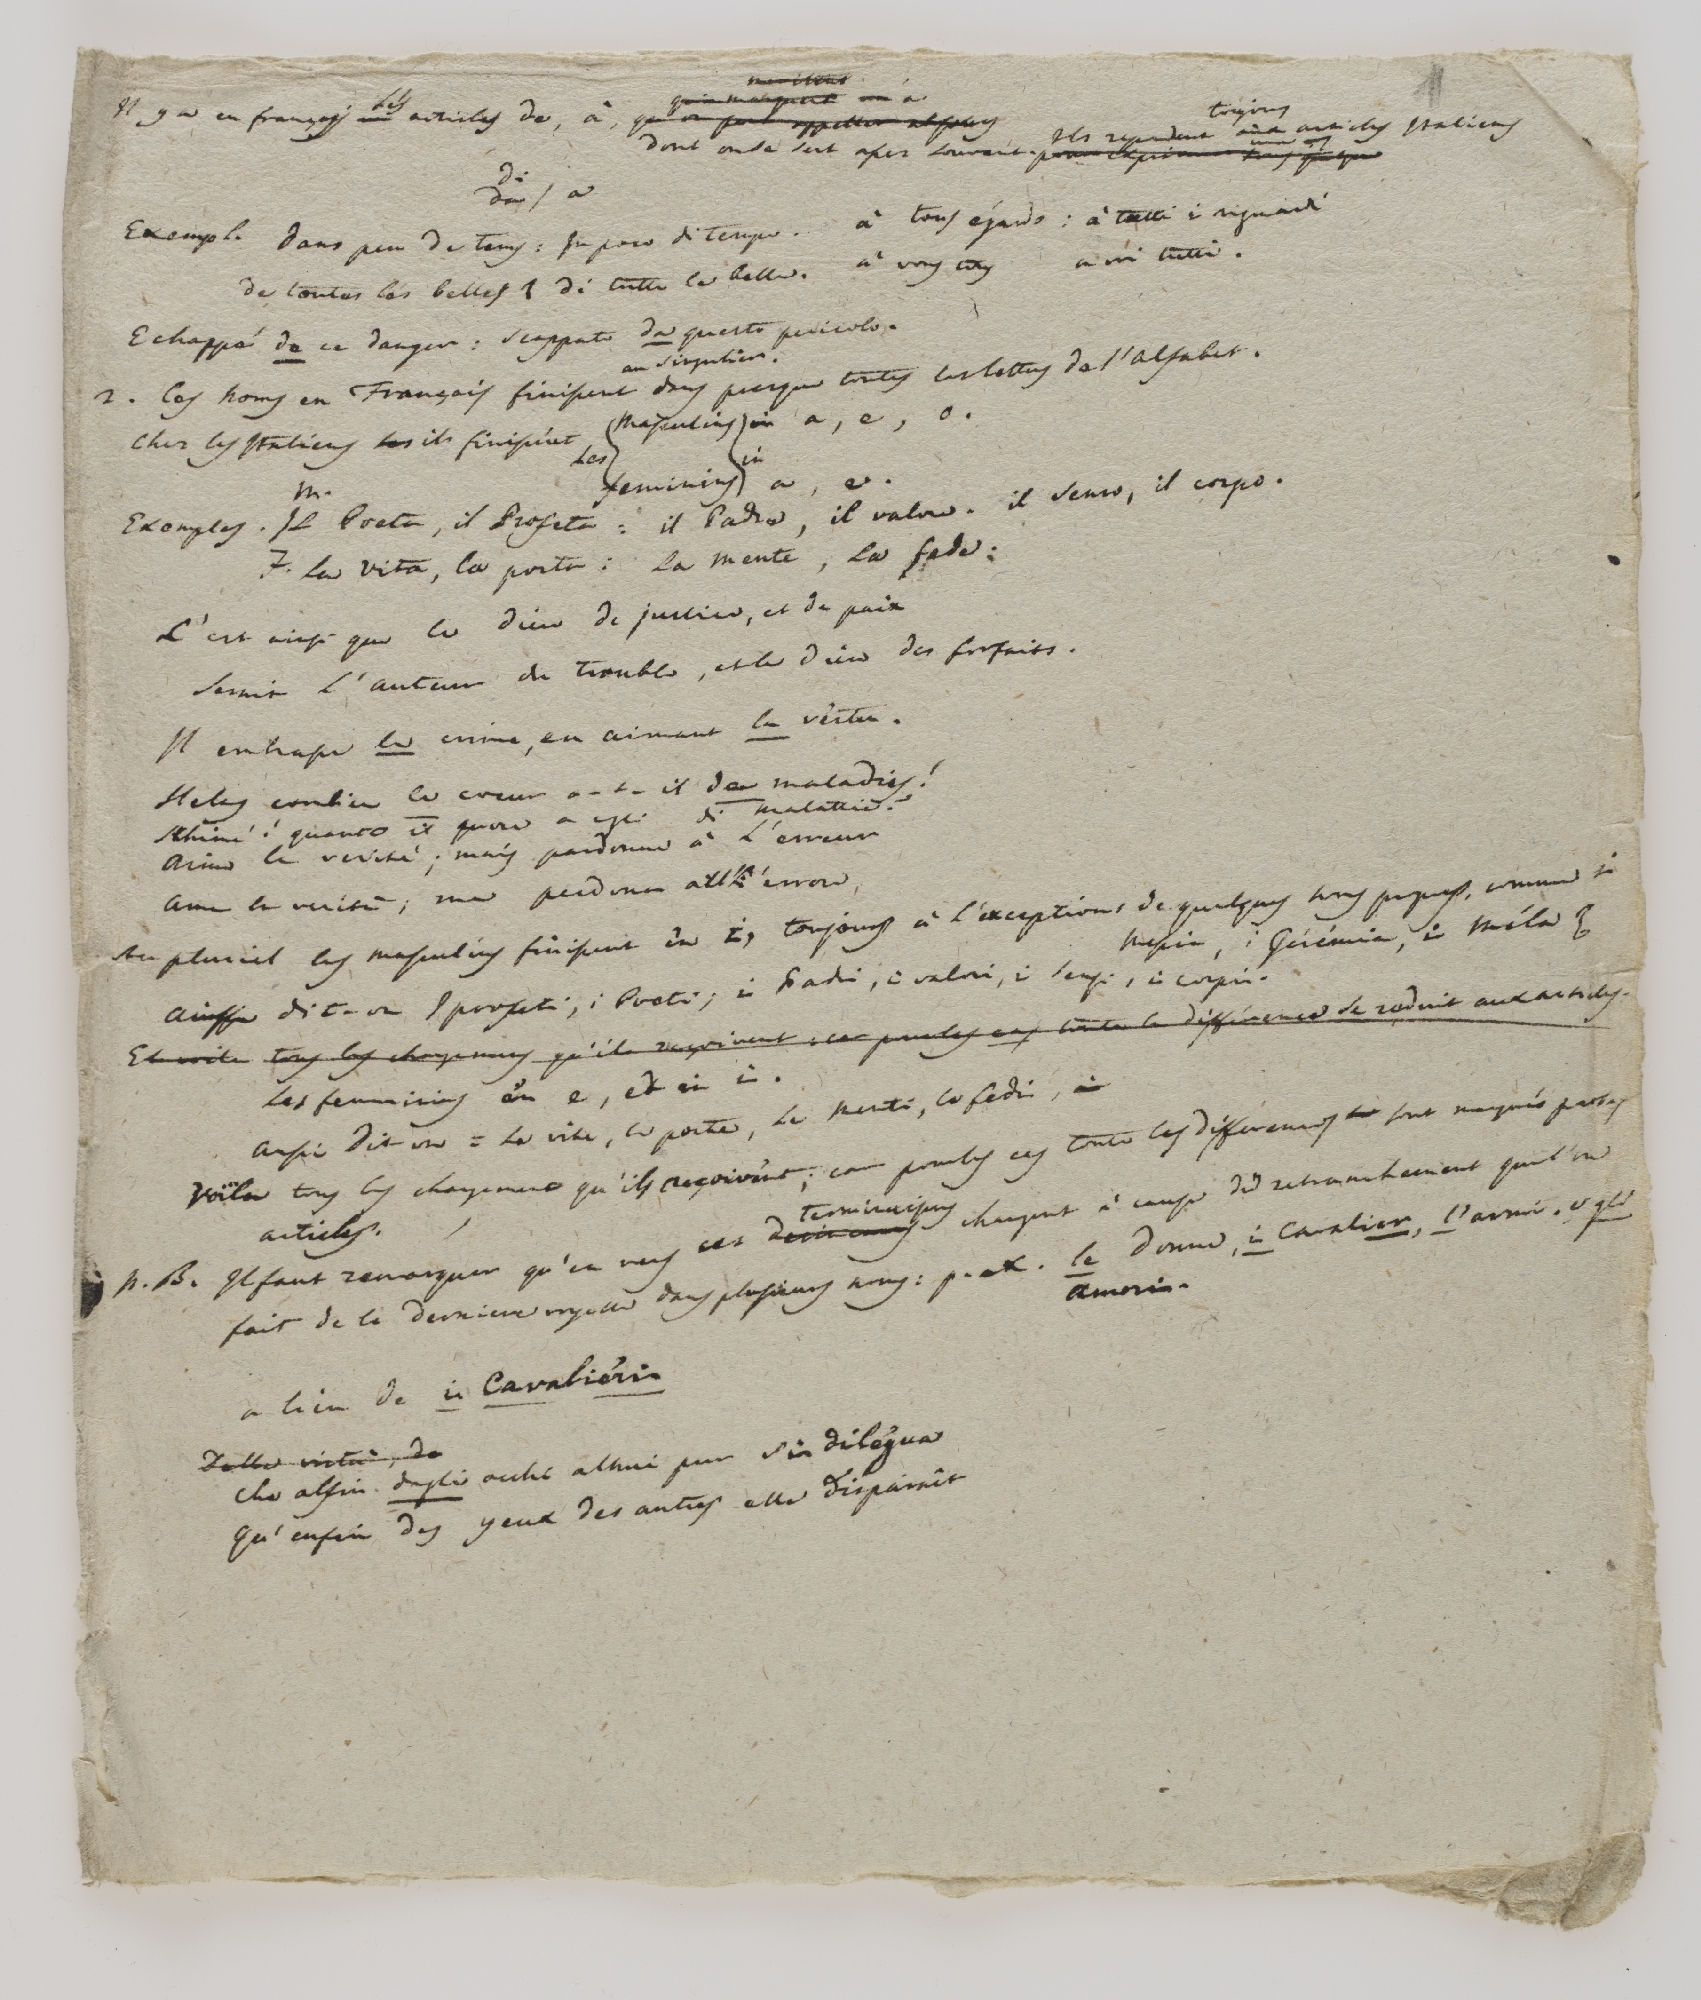 Il y a en françois les articles de, à,
dont on se sert assez souvent. Ils repondent toujours articles Italiens
di
da / a
Exemple dans peu de tems: In poco di tempo. à tous égards: à tutti i riguardi
de toutes les belles di tutte le belle. à vous tous a voi tutti.
Echappé de ce danger: scappato da questo pericolo.
au singulier.
2. Les noms en Français finissent dans presque toutes les lettres de l'alfabet.
Chez les Italiens ils finissent les masculins en a, e, o.
feminins in a, e.
m.
Exemples. Il Poeta, il Profeta: il Padre, il valore. il senso, il corpo.
F. La vita, la porta: la mente, la fede:
C'est ainsi que le dieu de justice, et de paix
seroit l'auteur de trouble, et le dieu des forfaits.
Il le crime, en aimant la vertu.
Helas combien le coeur a-t-il de maladies!
Ahimé! quante il cuore a egli di malattie!
Aime la verité; mais pardonne à l'erreur
Ama la verità; ma perdona all'errore,
Au pluriel les masculins finissent en i, toujours à l'exceptions de quelques noms propres, comme i
Messia, i Gérémia, i Méla
Ainssi dit-on I profeti, i Poeti; i Padri, i valori, i sensi, i corpi.
Et voila tous les changemens qu'ils reçoivent: car pour les cas toute la différence se reduit aux articles.
Les feminins en e, et en i.
Aussi dit on = le vite, le porte, le menti, le fedi,
Voila tous les changemens qu'ils reçoivent; car pour les cas toute les différences sont marqués par les
articles.
terminaisons
N.B. Il faut remarquer qu'en vers ces changent à cause du retranchement que l'on
fait de la derniere voyelle dans plusieurs noms: p. ex. le donne, i Cavalier, l'armi. o gli
amori.
a lieu de i Cavaliéri
Delle virtù, de
Che alfin dagli occhi altrui pur si diléqua
Qu'enfin des yeux des autres elle disparaît